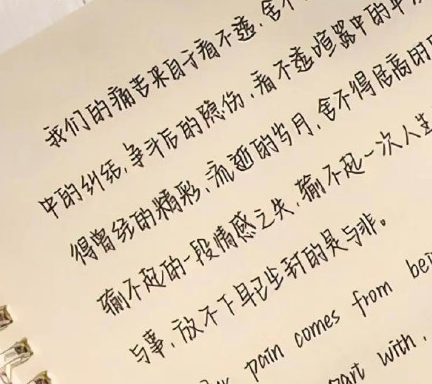 我们的痛苦来自于看不透,舍不
中的纠结,争斗后的隐伤,看不透喧嚣中的平
得曾经的精彩,流逝的岁月,舍不得居高时
输不起的一段情感之失,输不起一次人生
与事,放不下早已尘封的是与非。
pain comes from bei
part with,